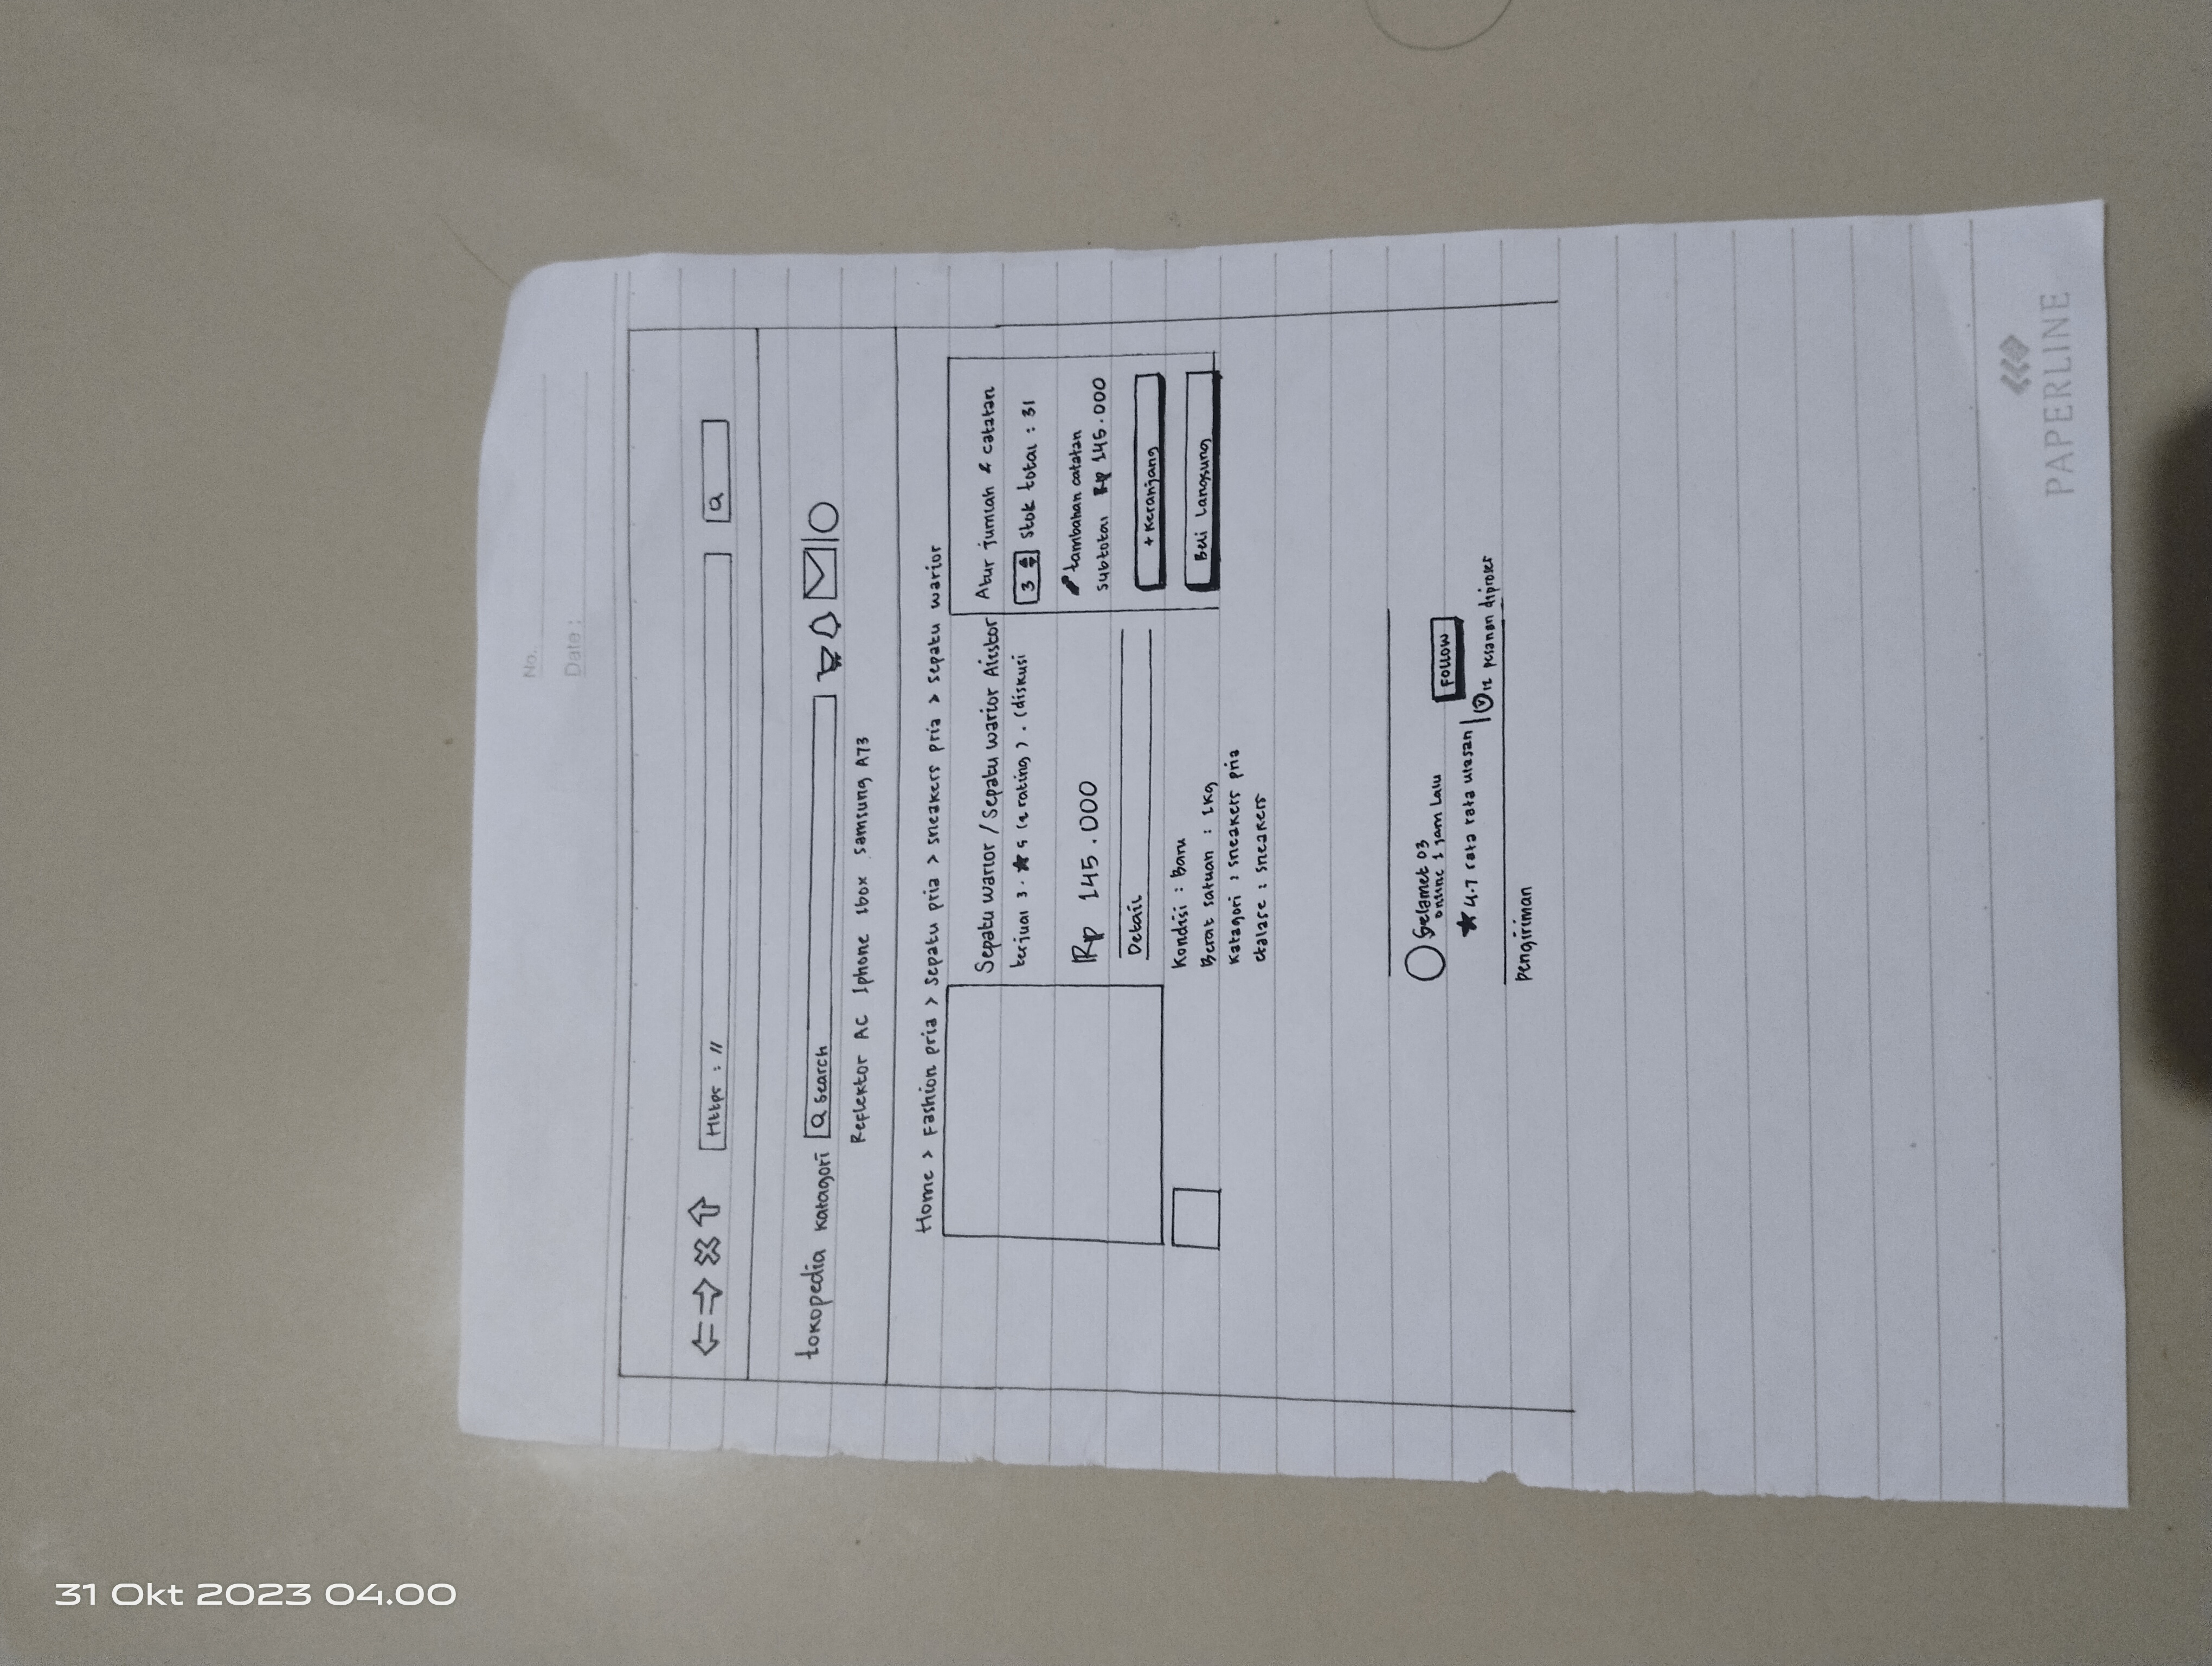 31 Okt 2023 04.00
No.
Date :
Https : //
tokopedia katagori Search
Reflektor AC Iphone ibox Samsung A73
Home > Fashion pria > Sepatu pria > sneakers pria > sepatu warior
Sepatu warior / Sepatu warior Airstor
terjual 3 . ★ 5 (2 rating) . (diskusi
Rp 145.000
Detail
Kondisi : Baru
Berat satuan : 1Kg
Katagori : sneakers pria
etalase : sneakers
Atur jumlah & catatan
3 Stok total : 31
tambahan catatan
subtotal Rp 145.000
+ Keranjang
Beli Langsung
Selamet 03
online 1 jam lalu
FOLLOW
★ 4.7 rata rata ulasan
12 pesanan diproses
Pengiriman
PAPERLINE